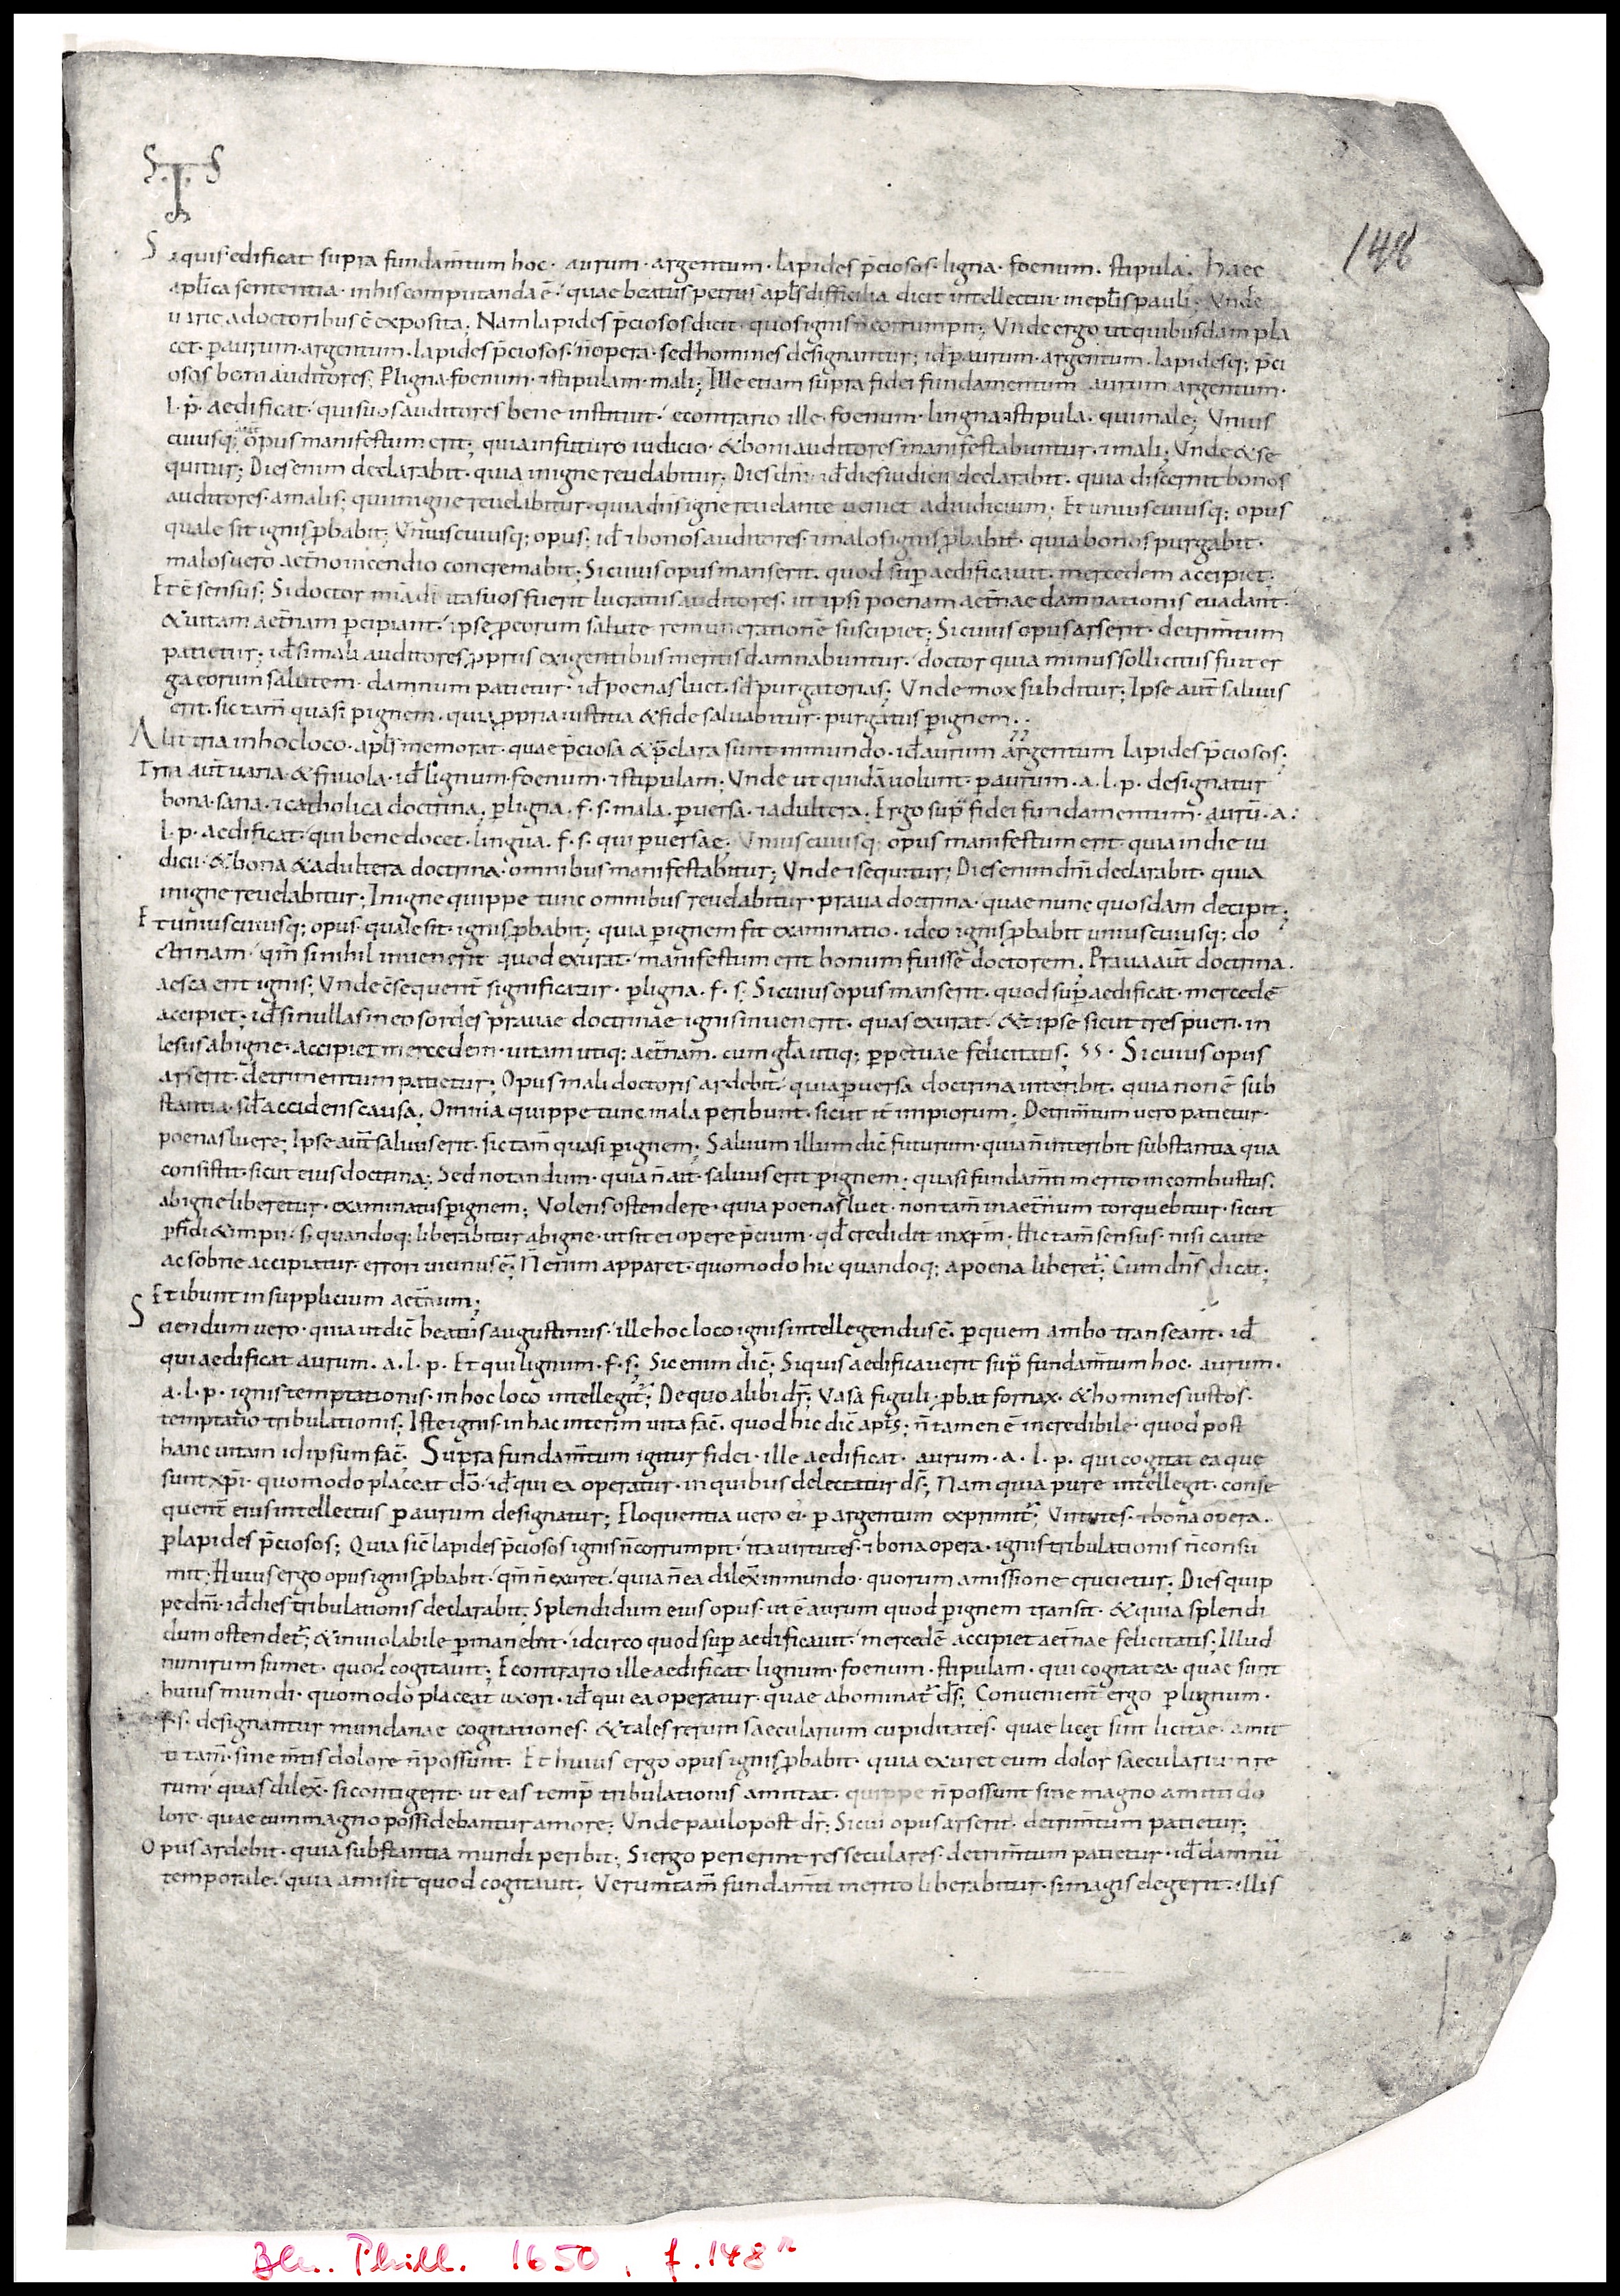 S T S
148
Si quis edificat supra fundam̄tum hoc · aurum · argentum · lapides p̄ciosos · ligna · foenum · stipula · haec
apl̄ica sententia · in his computanda ē · quae beatus petrus apl̄s difficilia dicit intellectu · in epl̄is pauli · Vnde
uarie a doctoribus ē exposita ; Nam lapides p̄ciosos dicit · quos ignis n̄ corrumpit ; Vnde ergo ut quibusdam pla
cet · p̄ aurum · argentum · lapides p̄ciosos · n̄ opera · sed homines designantur ; id̄ p̄ aurum · argentum · lapidesq; p̄ci
osos boni auditores ; P̄ ligna · foenum · ⁊ stipulam · mali ; Ille etiam supra fidei fundamentum aurum argentum ·
l · p · aedificat · qui suos auditores bene instituit · econtrario ille · foenum · lingna ⁊ stipula · qui male ; Vnius
cuiusq; opus manifestum erit ; quia in futuro iudicio · & boni auditores manifestabuntur · ⁊ mali ; Vnde & se
quitur ; Dies enim declarabit · quia in igne reuelabitur ; Dies dn̄i · id̄ dies iudicii declarabit · quia discernit bonos
auditores · a malis ; qui in igne reuelabitur · quia dn̄s igne reuelante ueniet ad iudicium ; Et uniuscuiusq; opus
quale sit ignis p̱babit ; Vniuscuiusq; opus ; id̄ ⁊ bonos auditores · ⁊ malos ignis p̱babit · quia bonos purgabit ·
malos uero aet̄no incendio concremabit ; Si cuius opus manserit · quod sup̄ aedificauit · mercedem accipiet ;
Et ē sensus ; Si doctor mīa di ita suos fuerit lucratus auditores · ut ipsi poenam aet̄nae damnationis euadant ·
& uitam aet̄nam p̄cipiant · ipse p̱ eorum salute remunerationē suscipiet ; Si cuius opus arserit · detrim̄tum
patietur ; id̄ si mali auditores p̱priis exigentibus meritis damnabuntur · doctor quia minus sollicitus fuit er
ga eorum salutem · damnum patietur · id̄ poenas luet · sd̄ purgatorias ; Vnde mox subditur ; Ipse aut̄ saluus
erit · sic tam̄ quasi p̄ ignem · quia p̱pria iustitia & fide saluabitur · purgatus p̄ ignem ..
Alit tria in hoc loco · apl̄s memorat · quae p̄ciosa & p̄clara sunt in mundo · id̄ aurum argentum lapides p̄ciosos ;
Tria aut̄ uana & friuola · id̄ lignum · foenum · ⁊ stipulam ; Vnde ut quidā uolunt · p̄ aurum · a · l · p · designatur
bona · sana · ⁊ catholica doctrina · p̄ ligna · f · s · mala · p̄uersa · ⁊ adultera · Ergo sup̄ fidei fundamentum · aurū · a ·
l · p · aedificat · qui bene docet · lingua · f · s · qui p̄uersae ; Vniuscuiusq; opus manifestum erit · quia in die iu
dicii · & bona & adultera doctrina · omnibus manifestabitur ; Vnde ⁊ sequitur ; Dies enim dn̄i declarabit · quia
in igne reuelabitur ; In igne quippe tunc omnibus reuelabitur · praua doctrina · quae nunc quosdam decipit ;
Et uniuscuiusq; opus · quale sit · ignis p̱babit ; quia p̄ ignem fit examinatio · ideo ignis p̱babit uniuscuiusq; do
ctrinam · qm̄ si nihil inuenerit quod exurat · manifestum erit bonum fuisse doctorem ; Praua aut̄ doctrina ·
aesca erit ignis ; Vnde c̄sequent̄ significatur · p̄ ligna · f · s ; Si cuius opus manserit · quod sup̄ aedificat · mercedē
accipiet ; id̄ si nullas in eo sordes prauae doctrinae ignis inuenerit · quas exurat · & ipse sicut tres pueri · in
lesus ab igne · accipiet mercedem · uitam utiq; aet̄nam · cum gl̄a utiq; p̄petuae felicitatis · ss · Si cuius opus
arserit · detrimentum patietur ; Opus mali doctoris ardebit · quia p̄uersa doctrina interibit · quia non ē sub
stantia · sd̄ accidens causa · Omnia quippe tunc mala peribunt · sicut it̄ impiorum ; Detrim̄tum uero patietur ·
poenas luere ; Ipse aut̄ saluus erit · sic tam̄ quasi p̄ ignem ; Saluum illum dic̄ futurum · quia n̄ interibit substantia qua
consistit · sicut eius doctrina ; Sed notandum · quia n̄ ait · saluus erit p̄ ignem ; quasi fundam̄ti merito incombustus ·
ab igne liberetur · examinatus p̄ ignem ; Volens ostendere · quia poenas luet · non tam̄ in aet̄num torquebitur · sicut
p̄fidi & impii · s; quandoq; liberabitur ab igne · ut sit ei opere p̄cium · qd̄ credidit in xp̄m · Hic tam̄ sensus · nisi caute
ac sobrie accipiatur · errori uicinus ē ; N̄ enim apparet · quomodo hic quandoq; a poena liberet̄ ; Cum dn̄s dicat ;
Et ibunt in supplicium aet̄num ;
Sciendum uero · quia ut dic̄ beatus augustinus · ille hoc loco ignis intellegendus ē · p̄ quem ambo transeant · id̄
qui aedificat aurum · a · l · p · Et qui lignum · f · s ; Sic enim dic̄ ; Si quis aedificauerit sup̄ fundam̄tum hoc · aurum ·
a · l · p · ignis temptationis · in hoc loco intellegit̄ ; De quo alibi dr̄ ; Vasa figuli · p̱bat fornax · & homines iustos ·
temptatio tribulationis ; Iste ignis in hac interim uita fac̄ · quod hic dic̄ apl̄s ; n̄ tamen ē incredibile · quod post
hanc uitam id ipsum fac̄ · Supra fundam̄tum igitur fidei · ille aedificat · aurum · a · l · p · qui cogitat ea que
sunt xp̄i · quomodo placeat dō · id̄ qui ea operatur · in quibus delectatur ds̄ ; Nam quia pure intellegit · conse
quent̄ eius intellectus p̄ aurum designatur ; Eloquentia uero ei · p̄ argentum exprimit̄ ; Virtutes · ⁊ bona opera ·
p̄ lapides p̄ciosos ; Quia sic̄ lapides p̄ciosos ignis n̄ corrumpit · ita uirtutes · ⁊ bona opera · ignis tribulationis n̄ consu
mit ; Huius ergo opus ignis p̱babit · qm̄ n̄ exuret · quia n̄ ea dilex̄ in mundo · quorum amissione crucietur ; Dies quip
pe dn̄i · id̄ dies tribulationis declarabit ; Splendidum eius opus · ut ē aurum quod p̄ ignem transit · & quia splendi
dum ostendet̄ ; & inuiolabile p̄manebit · idcirco quod sup̄ aedificauit · mercedē accipiet aet̄nae felicitatis ; Illud
nimirum sumet · quod cogitauit ; Econtrario ille aedificat · lignum · foenum · stipulam · qui cogitat ea · quae sunt
huius mundi · quomodo placeat uxori · id̄ qui ea operatur · quae abominat̄ ds̄ ; Conuenient̄ ergo p̄ lignum ·
f · s · designantur mundanae cogitationes · & tales rerum saecularium cupiditates · quae licet sint licitae · amit
ti tam̄ · sine m̄tis dolore n̄ possunt · Et huius ergo opus ignis p̱babit · quia exuret eum dolor saecularium re
rum · quas dilex̄ · si contigerit · ut eas temp̄ tribulationis amittat · quippe n̄ possunt sine magno amitti do
lore · quae cum magno possidebantur amore ; Vnde paulo post dr̄ ; Si cui opus arserit · detrim̄tum patietur ;
Opus ardebit · quia substantia mundi peribit ; Si ergo perierint res seculares · detrim̄tum patietur · id̄ damnū
temporale · quia amisit quod cogitauit ; Verumtam̄ fundam̄ti merito liberabitur · si magis elegerit · illis
Bln. Phill. 1650, f.148r